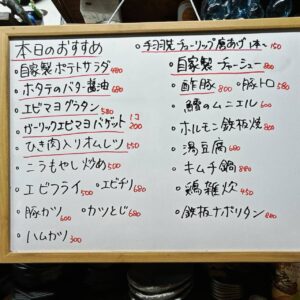 本日のおすすめ
・自家製ポテトサラダ 480
・ホタテのバター醤油 680
・エビマヨグラタン 580
・ガーリックエビマヨバゲット 1コ 200
・ひき肉入りオムレツ 550
・こうもやし炒め 500
・エビフライ 500 ・エビチリ 680
・豚カツ 600 ・カツとじ 680
・ハムカツ 300
・手羽焼チューリップ唐あげ 1本〜150
・自家製チャーシュー 800
・酢豚 800 ・豚トロ 580
・鱈のムニエル 600
・ホルモン鉄板焼 800
・湯豆腐 680
・キムチ鍋 880
・鶏雑炊 450
・鉄板ナポリタン 880